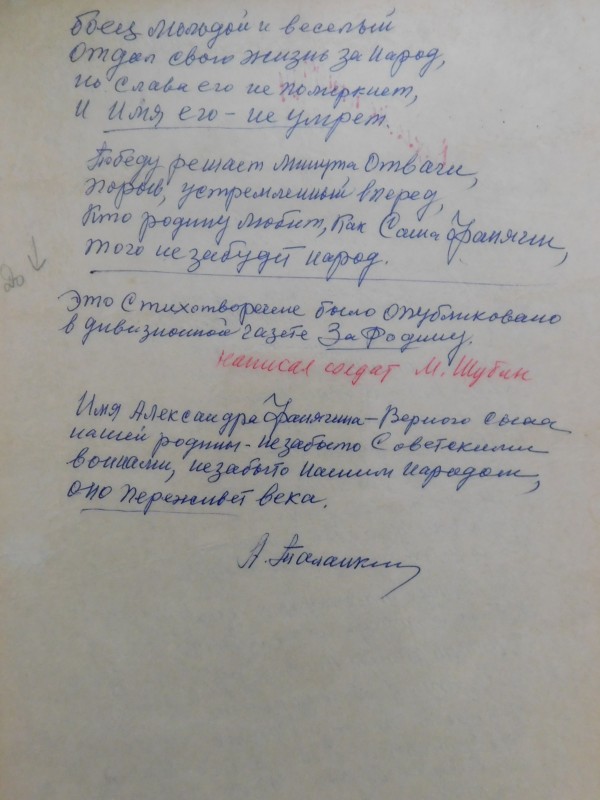 боец молодой и веселый
Отдал свою жизнь за народ,
но слава его не померкнет,
И Имя его - не умрет.
Победу решает минута Отваги,
Порыв, устремленный вперед,
Кто родину любит, Как Саша Фанягин,
того не забудет народ.
Это Стихотворение было Опубликовано
в дивизионной газете За Родину.
написал солдат М. Шубин
Имя Александра Фанягина - Верного Сына
нашей родины - незабыто Советскими
воинами, незабыто нашим народом,
оно переживет века.
А. Таланкин